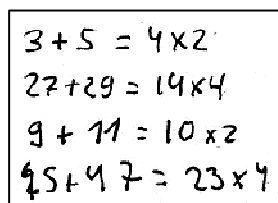 3 + 5 = 4 x 2
27 + 29 = 14 x 4
9 + 11 = 10 x 2
45 + 47 = 23 x 4